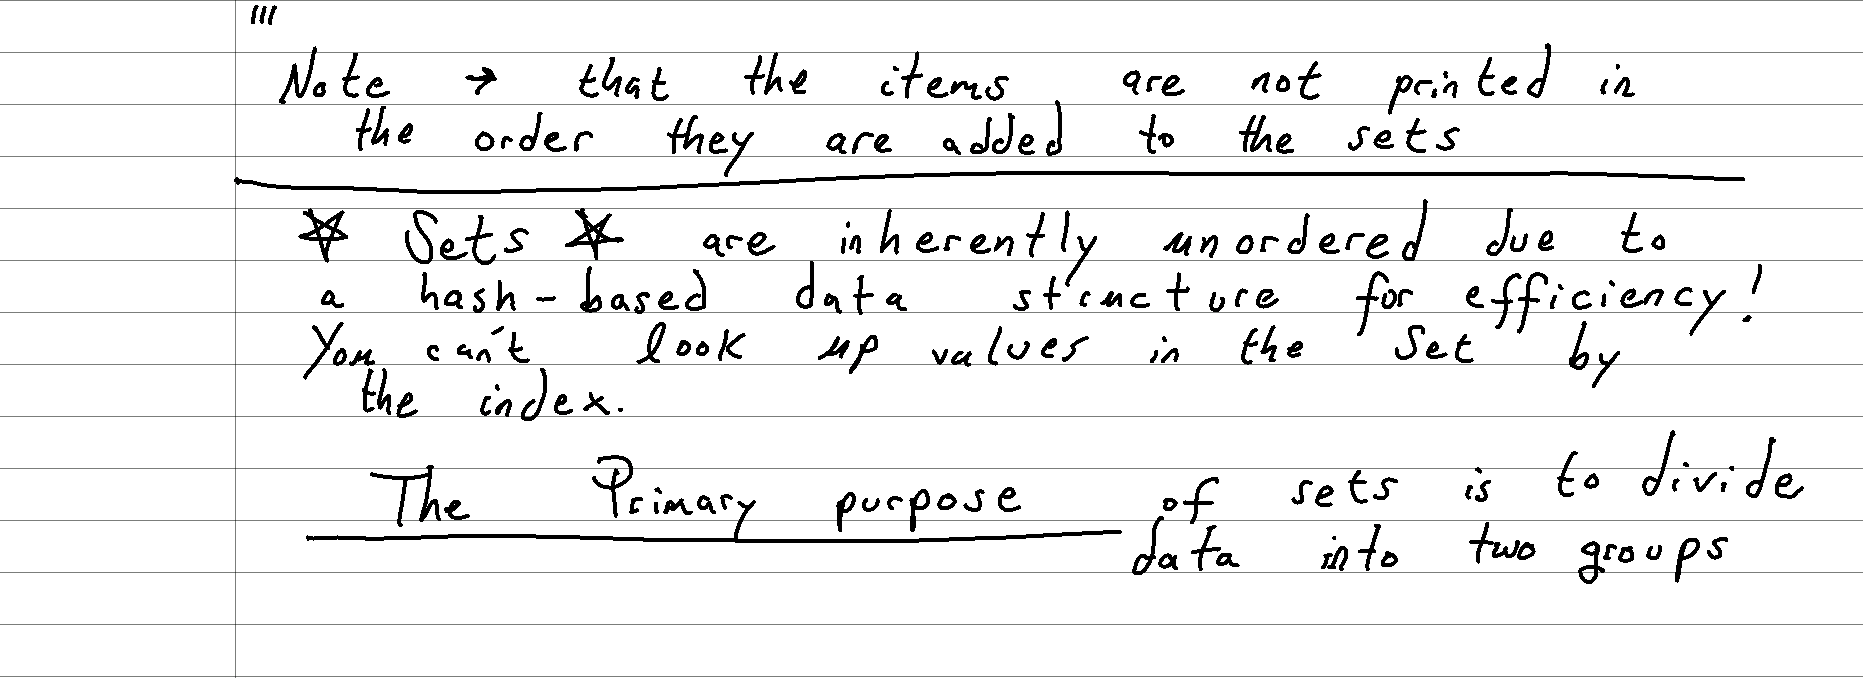 '''
Note → that the items are not printed in
the order they are added to the sets
☆ Sets ☆ are inherently unordered due to
a hash-based data structure for efficiency!
You can't look up values in the Set by
the index.
The Primary purpose of sets is to divide
data into two groups